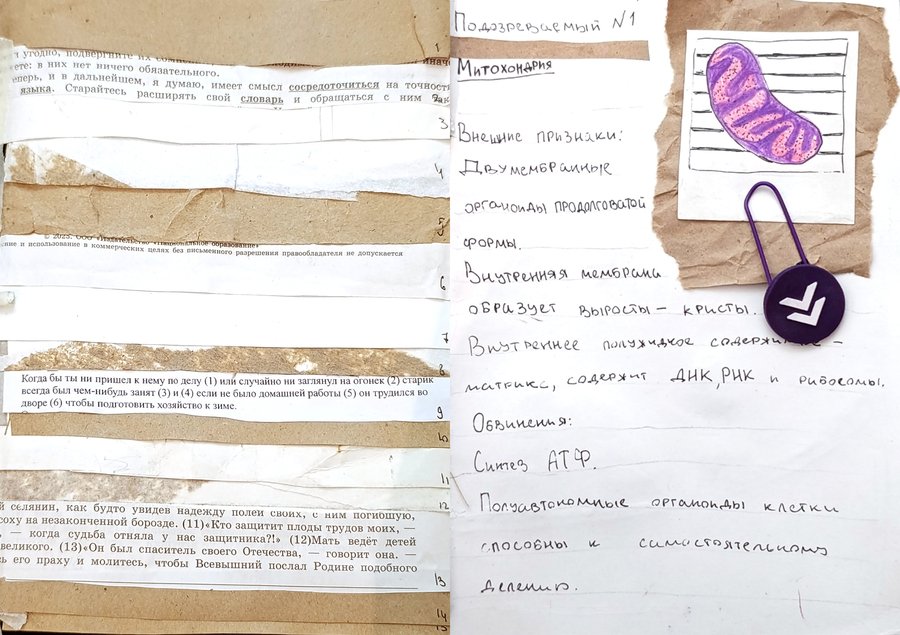 1
угодно, подвергните их
ете: в них нет ничего обязательного.
еперь, и в дальнейшем, я думаю, имеет смысл сосредоточиться на точност
языка. Старайтесь расширять свой словарь и обращаться с ним
3
4
5
© 2023. ООО «Издательство «Национальное образование»
ние и использование в коммерческих целях без письменного разрешения правообладателя не допускается
6
7
8
Когда бы ты ни пришел к нему по делу (1) или случайно ни заглянул на огонек (2) старик
всегда был чем-нибудь занят (3) и (4) если не было домашней работы (5) он трудился во
дворе (6) чтобы подготовить хозяйство к зиме.
9
10
11
12
й селянин, как будто увидев надежду полей своих, с ним погибшую,
соху на незаконченной борозде. (11)«Кто защитит плоды трудов моих, —
, — когда судьба отняла у нас защитника?!» (12)Мать ведёт детей
великого. (13)«Он был спаситель своего Отечества, — говорит она. —
ь его праху и молитесь, чтобы Всевышний послал Родине подобного
13
14
15
Подозреваемый №1
Митохондрия
Внешние признаки:
Двумембранные
органоиды продолговатой
формы.
Внутренняя мембрана
образует выросты – кристы.
Внутреннее полужидкое содержимое –
матрикс, содержит ДНК, РНК и рибосомы.
Обвинения:
Синтез АТФ.
Полуавтономные органоиды клетки
способны к самостоятельному
делению.